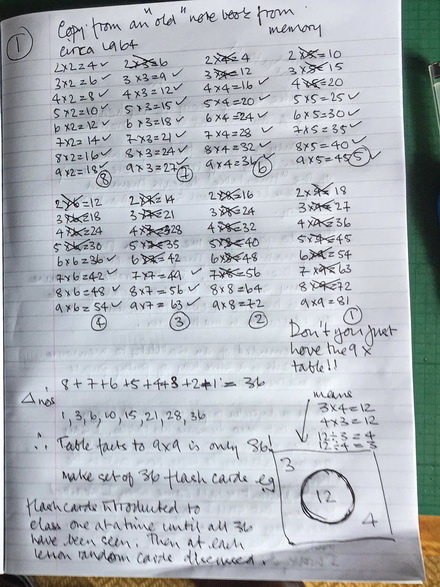 1
Copy from an "old" note book from
memory
circa 1964
2x2=4✓ 2x3=6 2x4=4 2x5=10
3x2=6✓ 3x3=9✓ 3x4=12 3x5=15
4x2=8✓ 4x3=12✓ 4x4=16✓ 4x5=20
5x2=10✓ 5x3=15✓ 5x4=20✓ 5x5=25✓
6x2=12✓ 6x3=18✓ 6x4=24✓ 6x5=30✓
7x2=14✓ 7x3=21✓ 7x4=28✓ 7x5=35✓
8x2=16✓ 8x3=24✓ 8x4=32✓ 8x5=40✓
9x2=18✓ 9x3=27✓ 9x4=36✓ 9x5=45✓
8 7 6 5
2x6=12 2x7=14 2x8=16 2x9=18
3x6=18 3x7=21 3x8=24 3x9=27
4x6=24 4x7=28 4x8=32 4x9=36
5x6=30 5x7=35 5x8=40 5x9=45
6x6=36✓ 6x7=42 6x8=48 6x9=54
7x6=42✓ 7x7=49✓ 7x8=56 7x9=63
8x6=48✓ 8x7=56✓ 8x8=64 8x9=72
9x6=54✓ 9x7=63✓ 9x8=72 9x9=81
4 3 2 1
Don't you just
love the 9x
table!!
8+7+6+5+4+3+2+1=36
Δ nos
1, 3, 6, 10, 15, 21, 28, 36
∴ Table facts to 9x9 is only 36!
make set of 36 flash cards eg
means
3x4=12
4x3=12
12÷3=4
12÷4=3
3
12
4
flashcards introduced to
class one at a time until all 36
have been seen. Then at each
lesson random cards discussed.